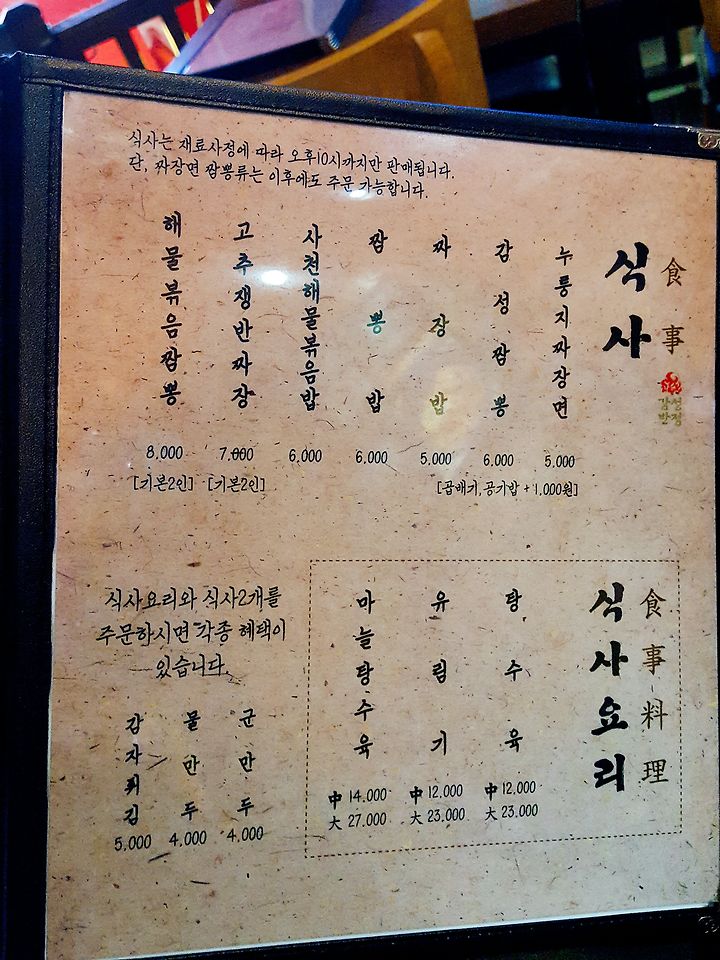 식사는 재료사정에 따라 오후10시까지만 판매됩니다.
단, 짜장면 짬뽕류는 이후에도 주문 가능합니다.
食事
식사
감성
반점
누룽지짜장면
5,000
감성짬뽕
6,000
짜장밥
5,000
짬뽕밥
6,000
사천해물볶음밥
6,000
고추쟁반짜장
7,000
해물볶음짬뽕
8,000
[곱배기,공기밥 + 1,000원]
[기본2인]
[기본2인]
食事料理
식사요리
탕수육
中 12,000
大 23,000
유림기
中 12,000
大 23,000
마늘탕수육
中 14,000
大 27,000
식사요리와 식사2개를
주문하시면 각종 혜택이
있습니다.
군만두
4,000
물만두
4,000
감자튀김
5,000